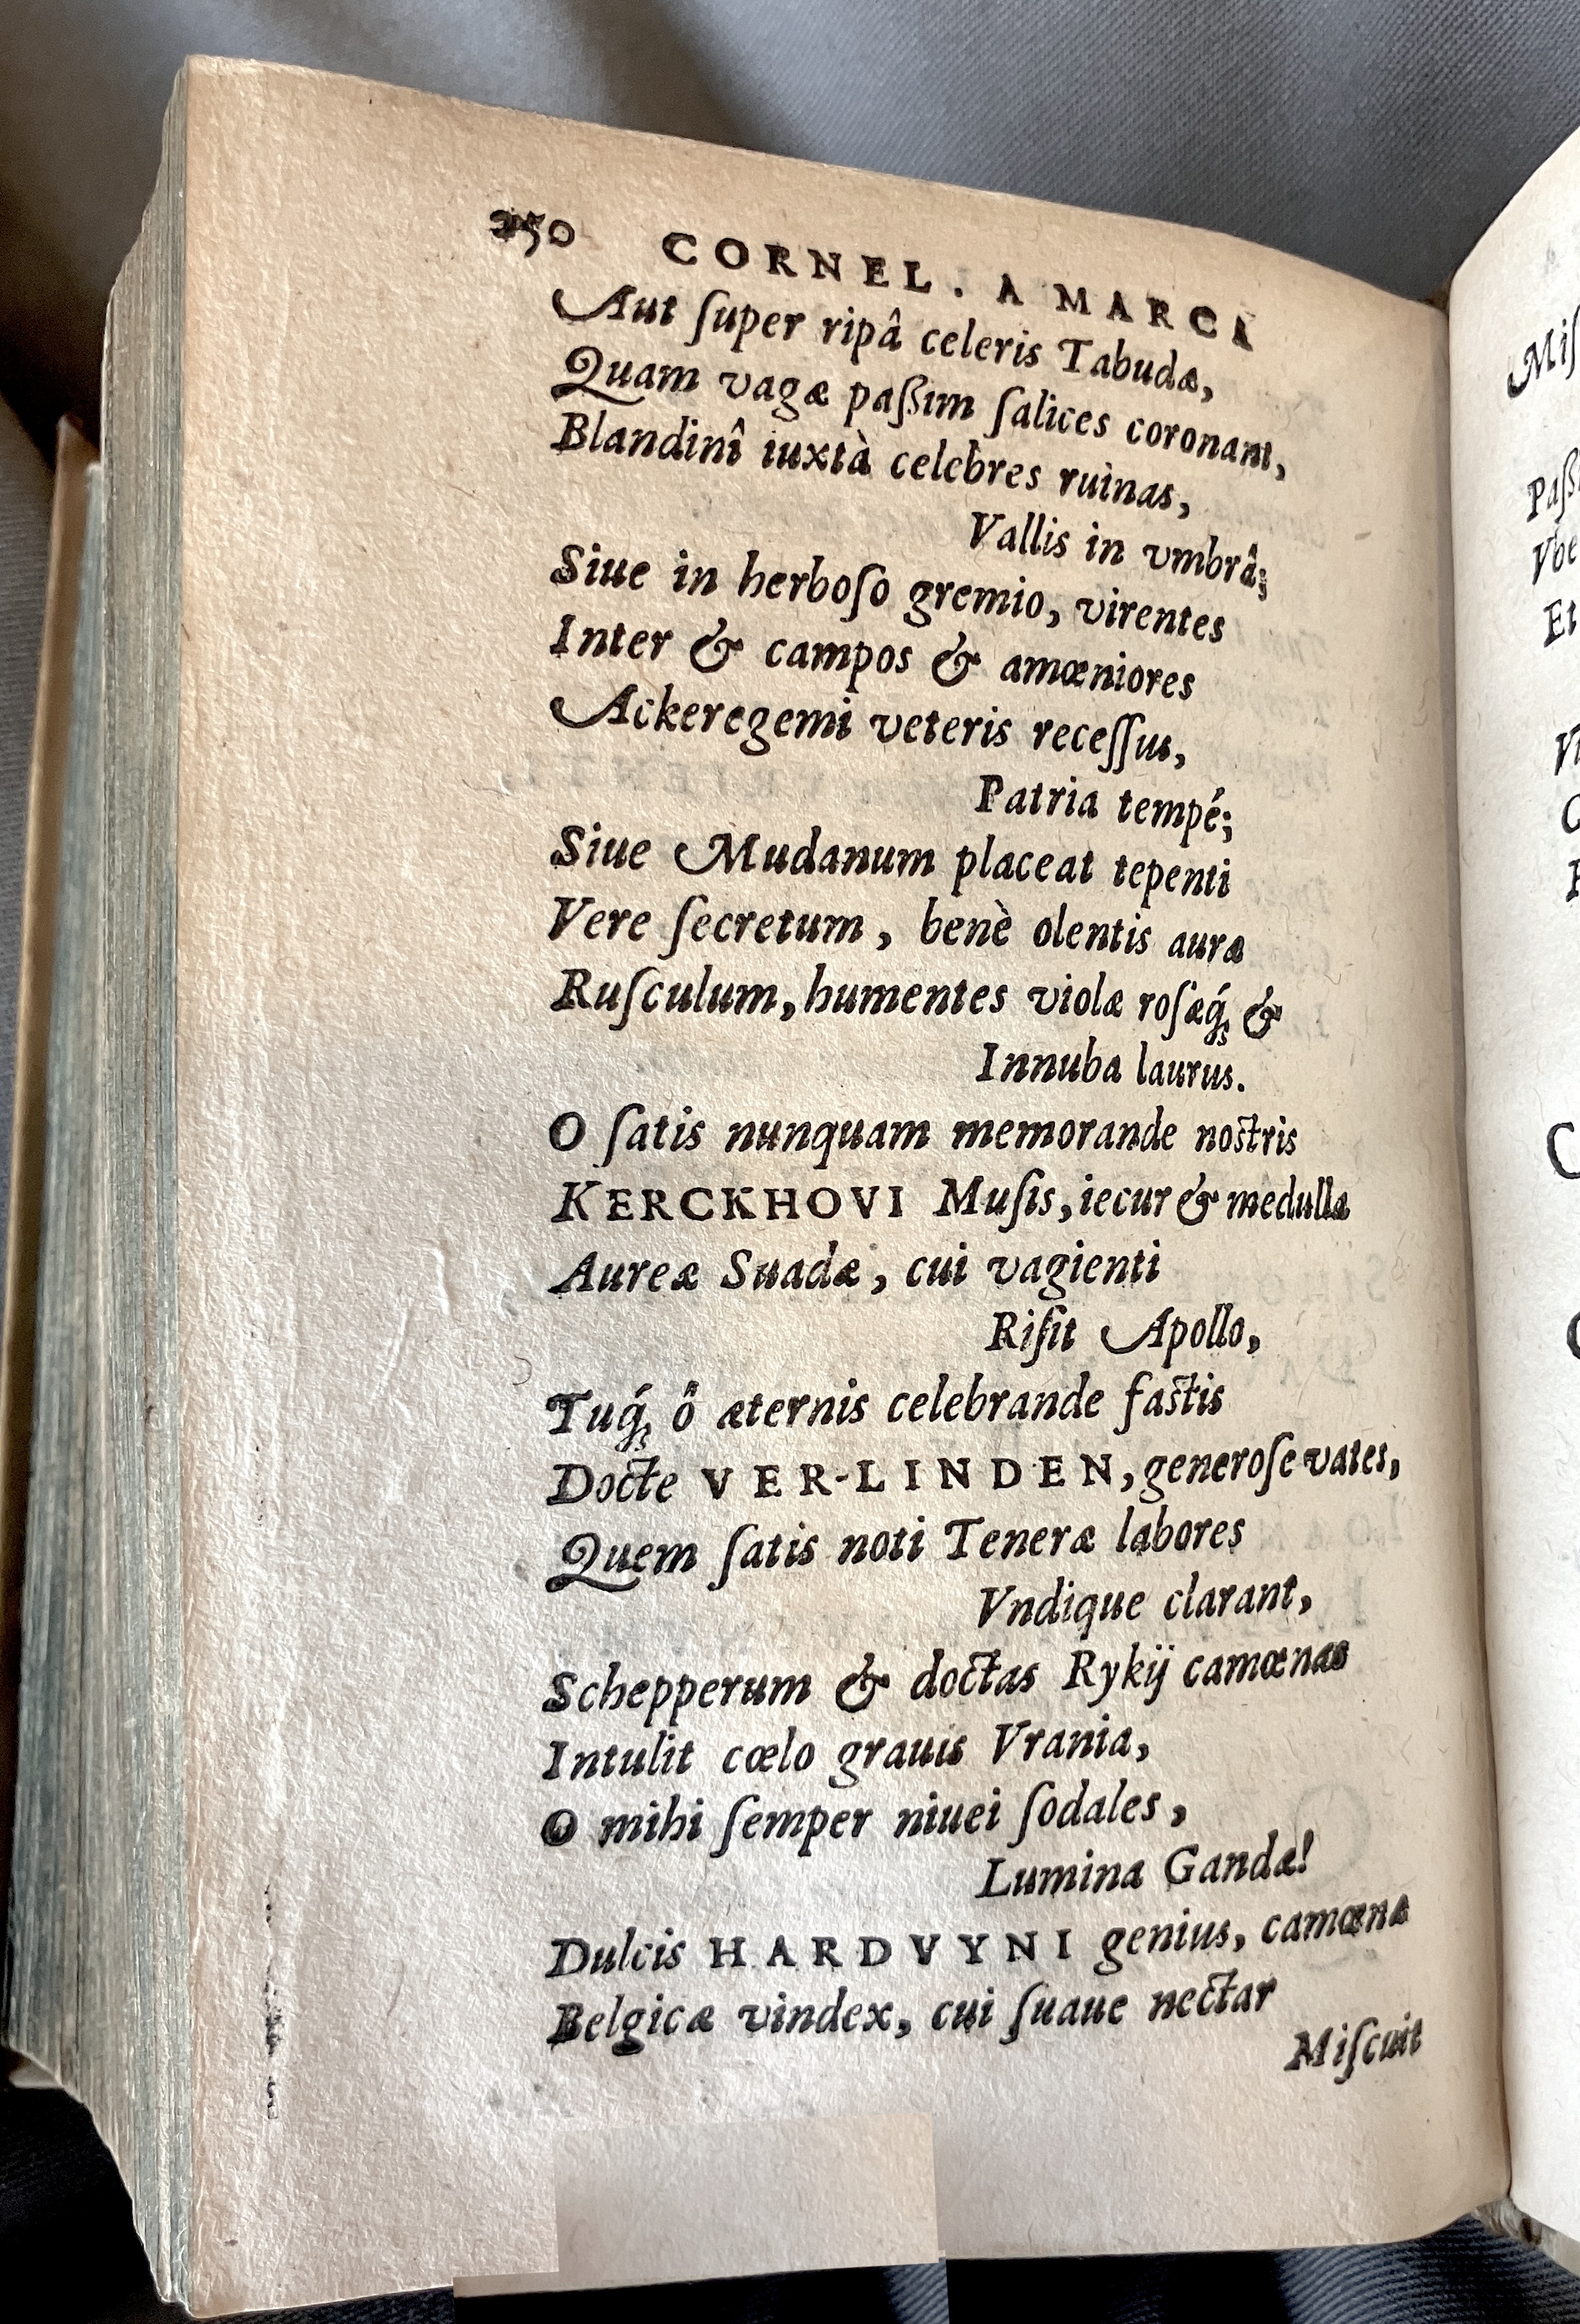 250 CORNEL. A MARCA
Aut ſuper ripâ celeris Tabudæ,
Quam vagæ paßim ſalices coronant,
Blandinî iuxtà celebres ruinas,
Vallis in vmbrâ;
Siue in herboſo gremio, virentes
Inter & campos & amœniores
Ackeregemi veteris receſſus,
Patria tempé;
Siue Mudanum placeat tepenti
Vere ſecretum, benè olentis auræ
Ruſculum, humentes violæ roſæq́; &
Innuba laurus.
O ſatis nunquam memorande noſtris
KERCKHOVI Muſis, iecur & medulla
Aureæ Suadæ, cui vagienti
Riſit Apollo,
Tuq́; ô æternis celebrande faſtis
Docte VER-LINDEN, generoſe vates,
Quem ſatis noti Teneræ labores
Vndique clarant,
Schepperum & doctas Rykij camœnas
Intulit cœlo grauis Vrania,
O mihi ſemper niuei ſodales,
Lumina Gandæ!
Dulcis HARDVYNI genius, camœnæ
Belgicæ vindex, cui ſuaue nectar
Miſcuit
Miſ
Paß
Vbe
Et